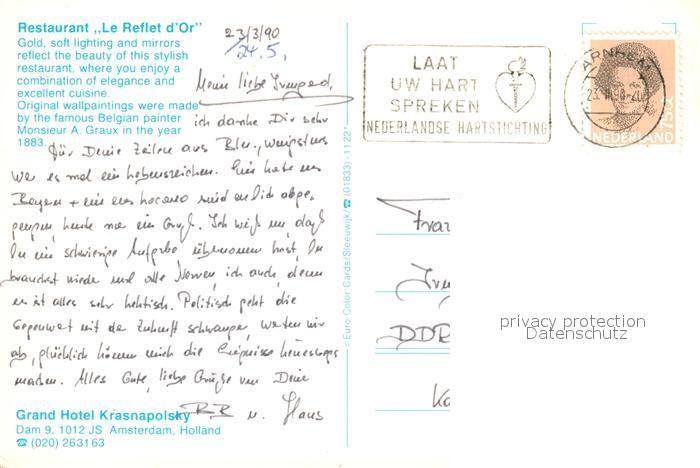 Restaurant „Le Reflet d'Or"
Gold, soft lighting and mirrors
reflect the beauty of this stylish
restaurant, where you enjoy a
combination of elegance and
excellent cuisine.
Original wallpaintings were made
by the famous Belgian painter
Monsieur A. Graux in the year
1883.
23/3/90
24.5.
Meine liebe
ich danke Dir sehr
für Deine Zeilen aus Bln., wenigstens
war es mal ein Lebenszeichen. Eine
Bayern + sind endlich
heute nur ein Gruß. Ich weiß nur, daß
Du eine schwierige Aufgabe übernommen hast, Du
brauchst wieder mal alle Nerven, ich auch, denn
es ist alles sehr hektisch. Politisch geht die
Gegenwart mit der Zukunft schwanger, warten wir
ab, glücklich können mich die Ereignisse keineswegs
machen. Alles Gute, liebe Grüße von Deine
u. Hans
Grand Hotel Krasnapolsky
Dam 9, 1012 JS Amsterdam, Holland
☎ (020) 263163
© Euro Color Cards/Sleeuwijk/☎ (01833) - 1122*
LAAT
UW HART
SPREKEN
NEDERLANDSE HARTSTICHTING
ARNHEM
NEDERLAND 75c
DDR
privacy protection
Datenschutz